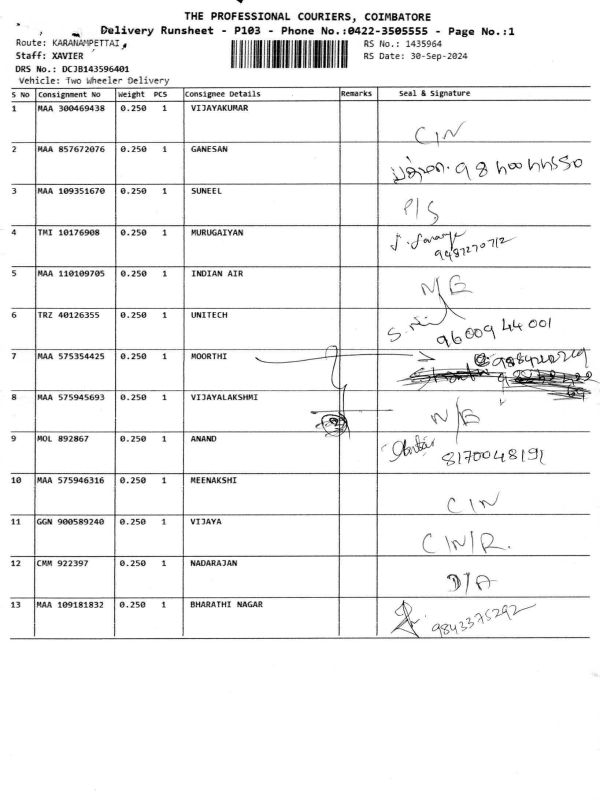 THE PROFESSIONAL COURIERS, COIMBATORE
Delivery Runsheet - P103 - Phone No.:0422-3505555 - Page No.:1
Route: KARANAMPETTAI RS No.: 1435964
Staff: XAVIER RS Date: 30-Sep-2024
DRS No.: DCJB143596401
Vehicle: Two Wheeler Delivery
S No Consignment No Weight PCS Consignee Details Remarks Seal & Signature
1 MAA 300469438 0.250 1 VIJAYAKUMAR C/N
2 MAA 857672076 0.250 1 GANESAN
3 MAA 109351670 0.250 1 SUNEEL P/S
4 TMI 10176908 0.250 1 MURUGAIYAN 9487270712
5 MAA 110109705 0.250 1 INDIAN AIR N/E
6 TRZ 40126355 0.250 1 UNITECH 96009 44001
7 MAA 575354425 0.250 1 MOORTHI
8 MAA 575945693 0.250 1 VIJAYALAKSHMI N/E
9 MOL 892867 0.250 1 ANAND 8170048191
10 MAA 575946316 0.250 1 MEENAKSHI C/N
11 GGN 900589240 0.250 1 VIJAYA C/N/R.
12 CMM 922397 0.250 1 NADARAJAN D/A
13 MAA 109181832 0.250 1 BHARATHI NAGAR 9843375292